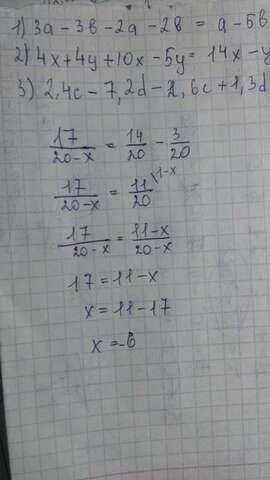 1) 3а - 3в - 2а - 2в = а - 5в
2) 4x + 4y + 10x - 5y = 14x - y
3) 2,4c - 7,2d - 1,6c + 1,3d
17/20-x = 14/20 - 3/20
17/20-x = 11/20 \1-x
17/20-x = 11-x/20-x
17 = 11 - x
x = 11 - 17
x = -6